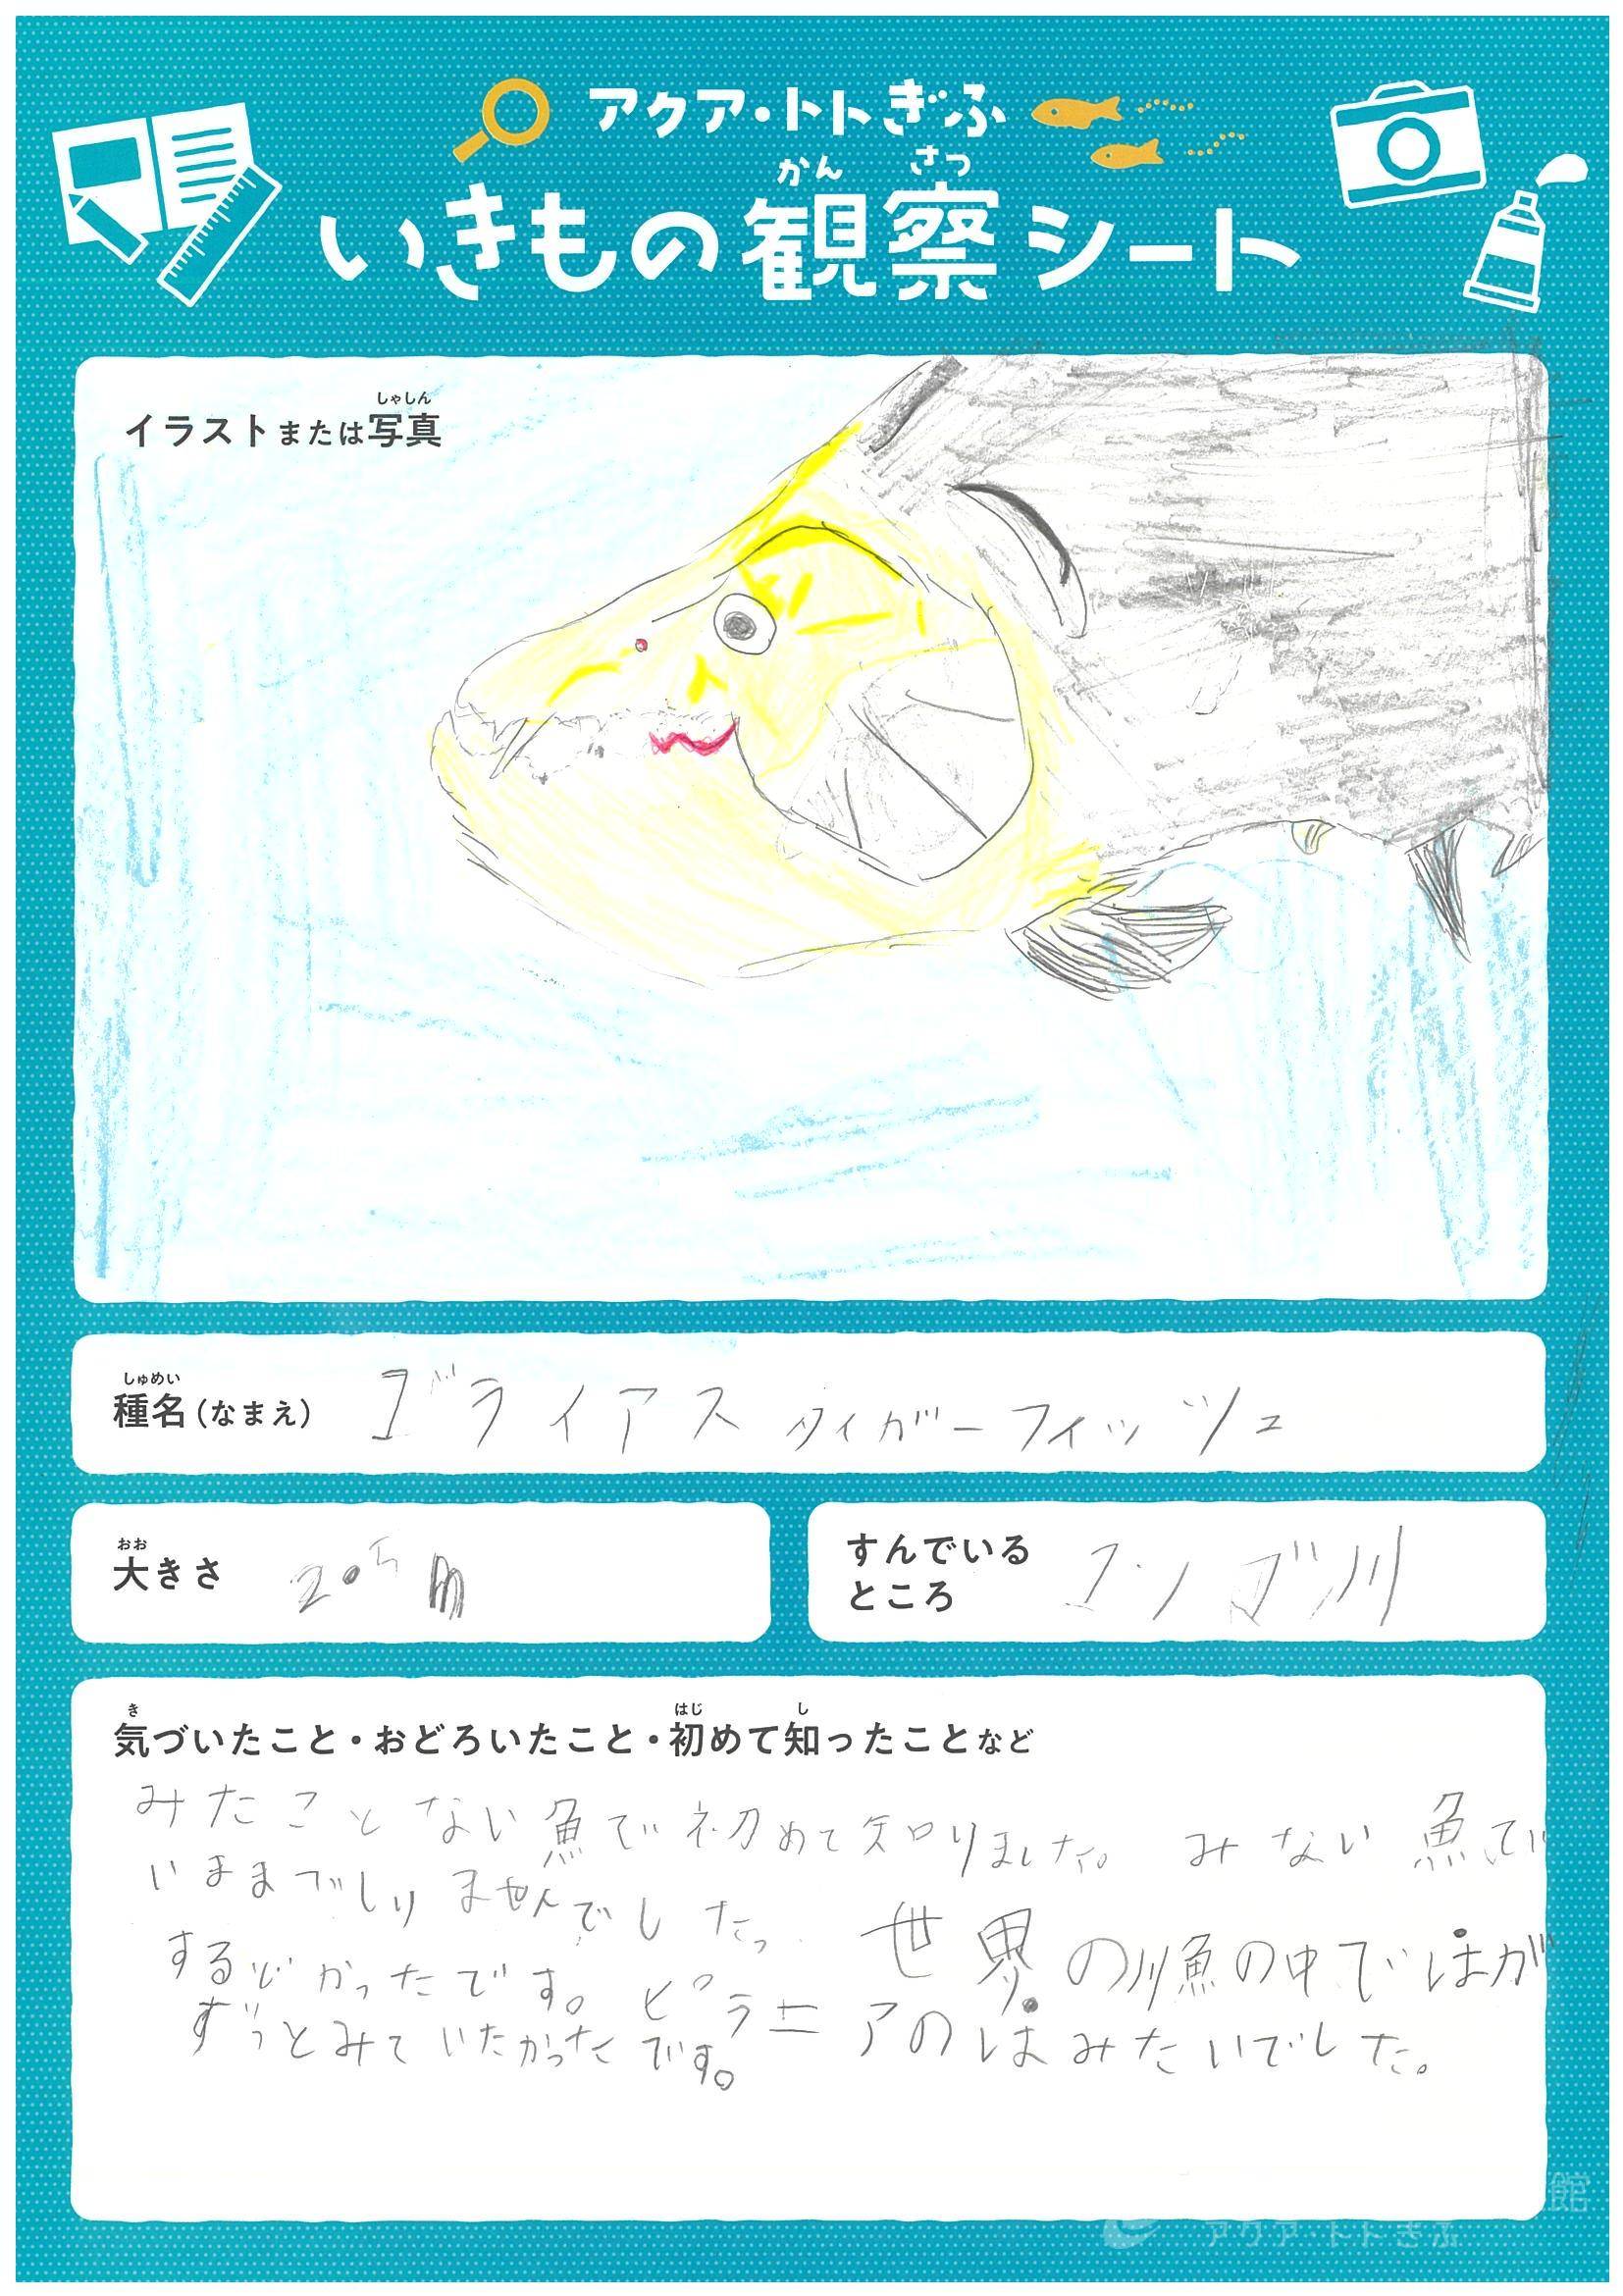 アクア・トトぎふ
かん さつ
いきもの観察シート
しゃしん
イラストまたは写真
しゅめい
種名(なまえ) ゴライアスタイガーフィッシュ
おお
大きさ
すんでいる
ところ コンゴ川
き はじ し
気づいたこと・おどろいたこと・初めて知ったことなど
みたことない魚で初めて知りました。 みない魚で
いままでしりませんでした。 世界の川魚の中ではが
するどかったです。 ピラニアのはみたいでした。
ずっとみていたかったです。
館
アクア・トトぎふ